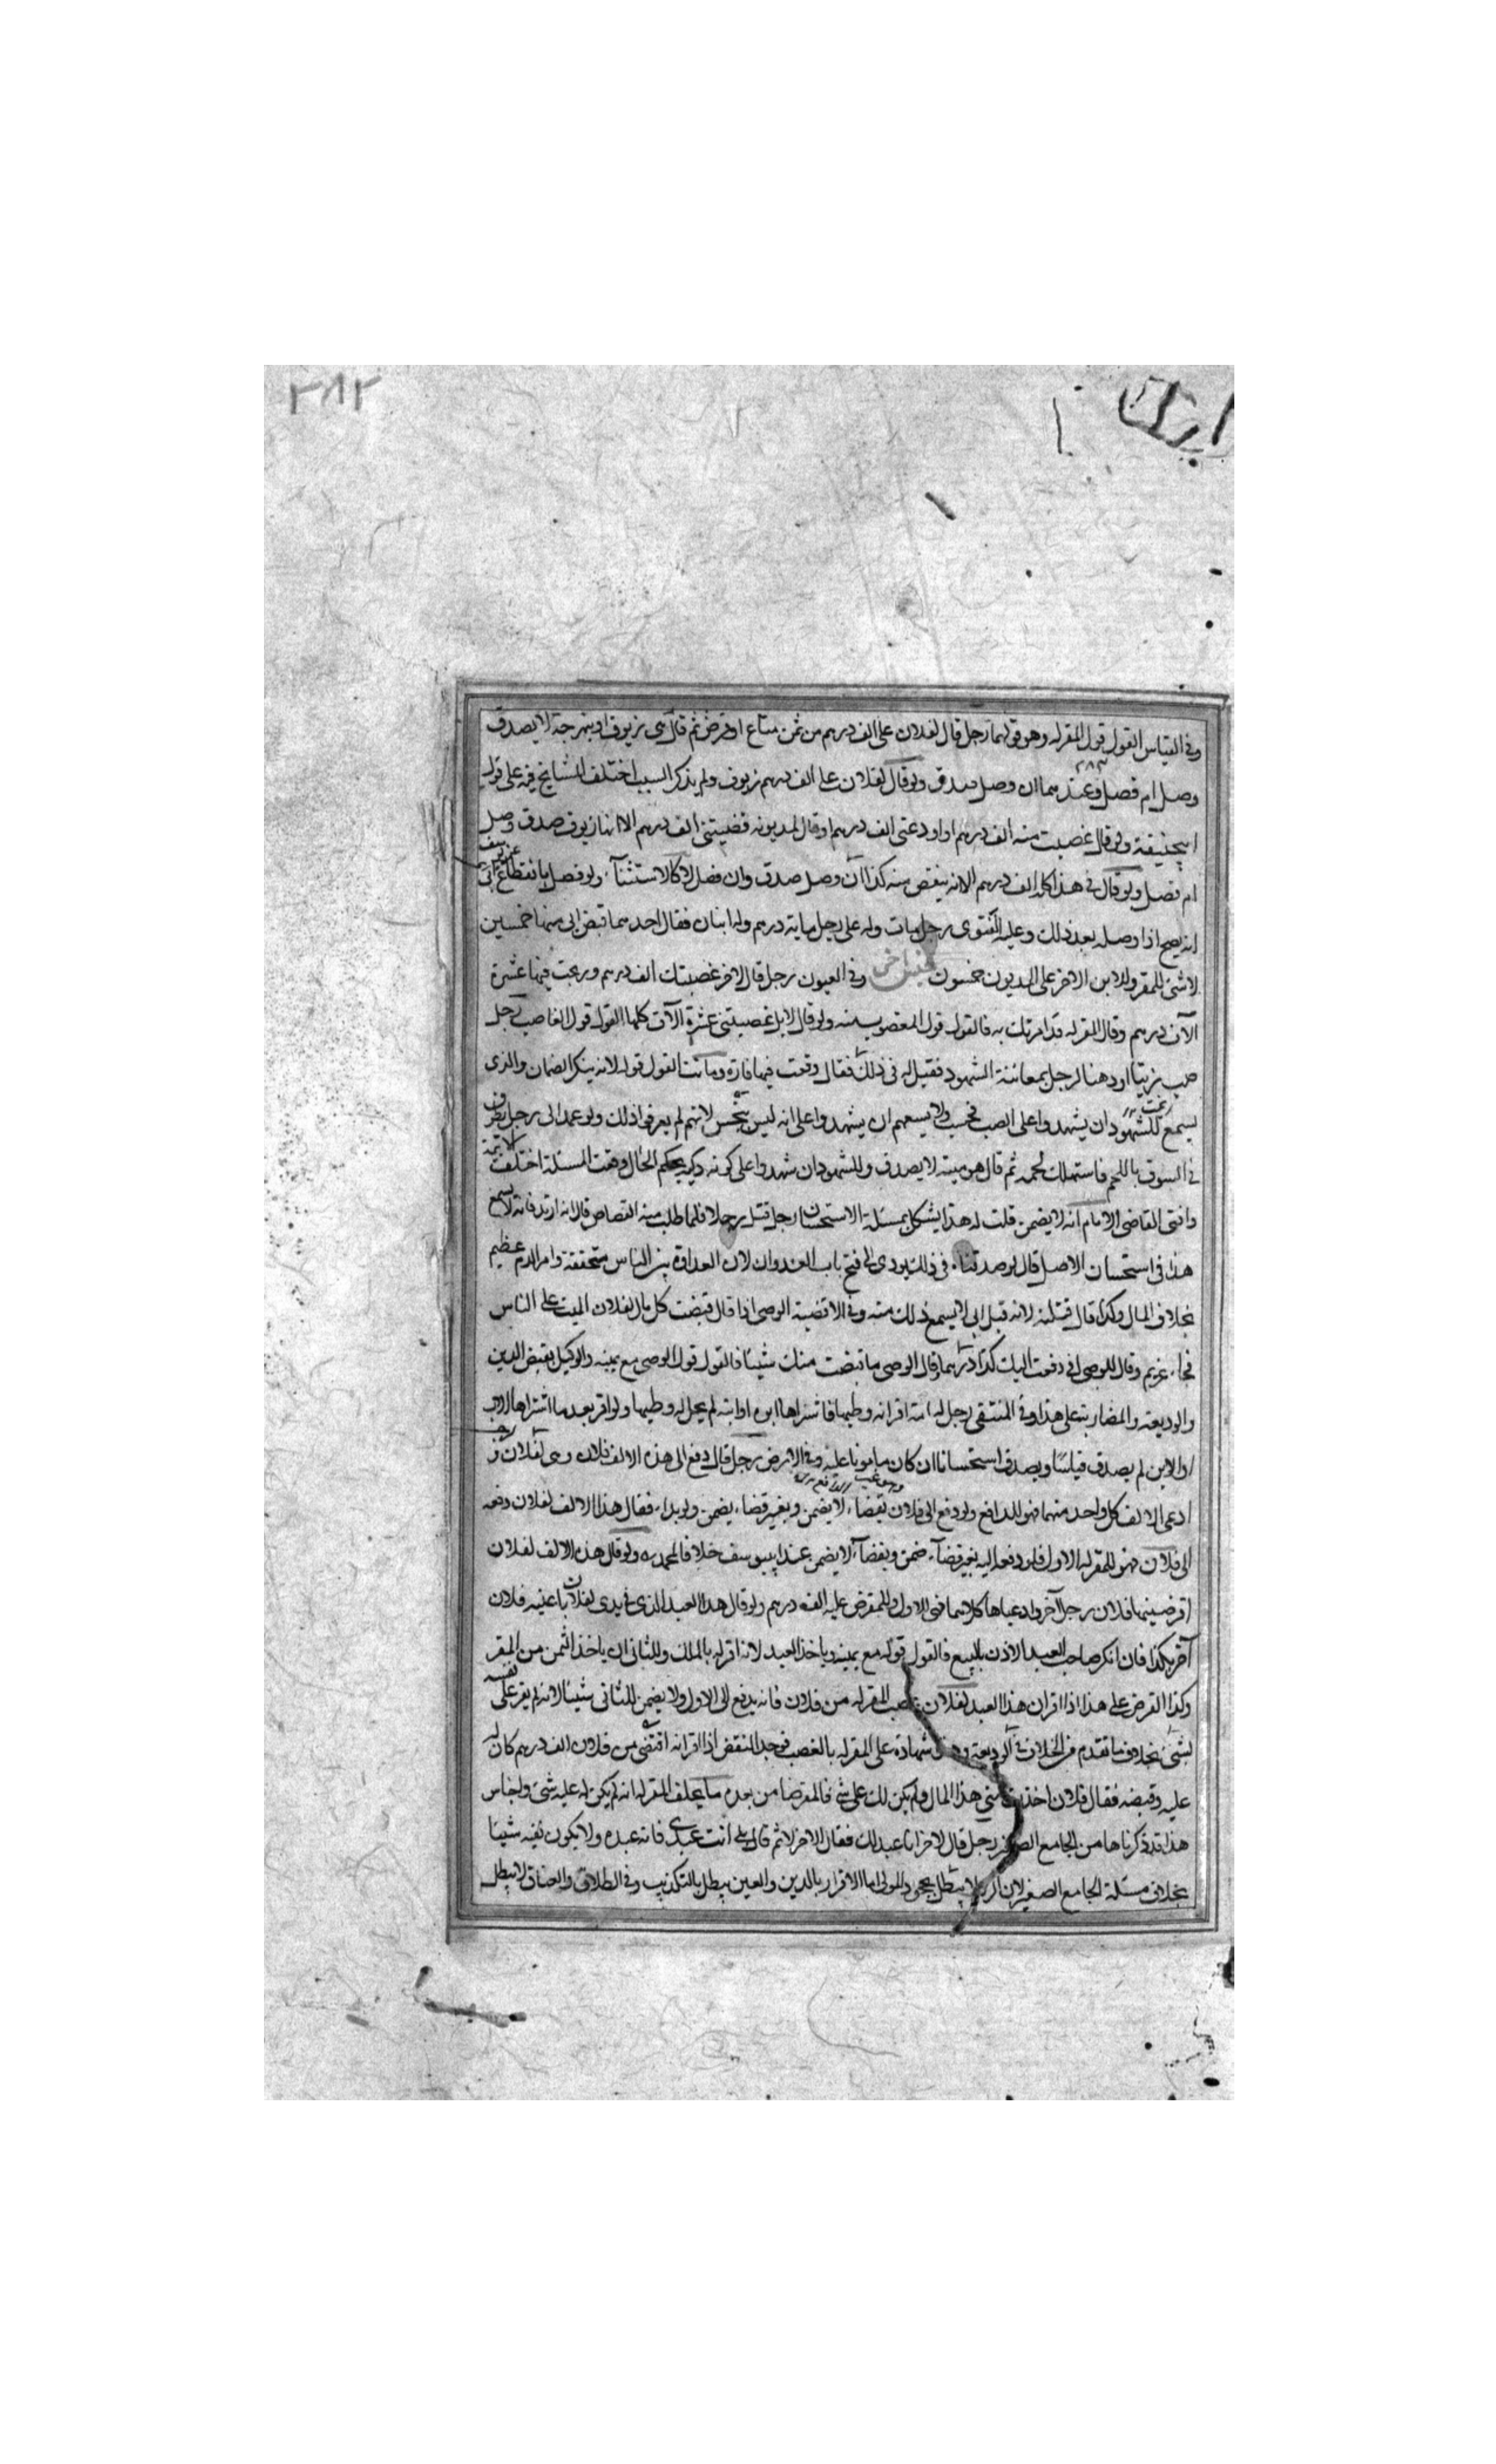 ٢٨٢
وفى القياس القول قول المقر له وهو قولهما رجل قال لفلان على الف درهم من ثمن متاع او قرض ثم قال هى زيوف او نبهرجة لا يصدق
وصل ام فصل وعندهما ان وصل صدق ولو قال لفلان على الف درهم زيوف ولم يذكر السبب اختلف المشايخ فيه على قول
ابيحنيفة ولو قال غصبت منه الف درهم او اودعنى الف درهم او قال لمديونه قضيتنى الف درهم الا انها زيوف صدق وصل
ام فصل ولو قال فى هذا كله الف درهم الا انه ينقص منه كذا ان وصل صدق وان فصل لا كالاستثناء ولو فصل بانقطاع
انه يصح اذا وصله بعد ذلك وعليه الفتوى رجل مات وله على رجل ماية درهم وله ابنان فقال احدهما قبض ابى منها خمسين
لا شئ للمقر وللابن الاخر على المديون خمسون وفى العيون رجل قال لاخر غصبتك الف درهم وربحت فيها عشرة
الآف درهم وقال المقر له قد امرتك به فالقول قول المغصوب منه ولو قال لا بل غصبتنى عشرة الآف كلها القول قول الغاصب رجل
صب زيتا او دهنا لرجل بمعاينة الشهود فقيل له فى ذلك فقال وقعت فيها فارة وماتت القول قوله لانه ينكر الضمان والذى
يسمع للشهود ان يشهدوا على الصب فحسب ولا يسعهم ان يشهدوا على انه ليس بنجس لانهم لم يعرفوا ذلك ولو عمد الى رجل
فى السوق باللحم فاستهلك لحمه ثم قال هو ميتة لا يصدق وللشهود ان شهدوا على كونه ذكية بحكم الحال وقعت المسئلة اختلفت
وافتى القاضى الامام انه لا يضمن قلت له هذا يشكل بمسئلة الاستحسان رجل قتل رجلا فلما طلب منه القصاص قال انه ارتد فانه لا يسمع
هذا فى استحسان الاصل قال لو صدقنا فى ذلك يودى الى فتح باب العدوان لان العداوة بين الناس متحققة وامر الدم عظيم
بخلاف المال وكذا قال قتلته لانه قتل ابى لا يسمع ذلك منه وفى الاقضية الوصى اذا قال قبضت كل مال لفلان الميت على الناس
فجاء غريم وقال للوصى انى دفعت اليك كذا درهما وقال الوصى ما قبضت منك شيئا فالقول قول الوصى مع يمينه والوكيل بقبض الدين
والوديعة والمضاربة على هذا وفى المنتقى رجل له امة اقر انه وطيها فاشتراها ابوه او ابنه لم يحل له وطيها ولو اقر بعد ما اشتراها الاب
او الابن لم يصدق قياسا ويصدق استحسانا ان كان مامونا عليه وفى الارض رجل قال دفع الى هذه الالف فلان وهى لفلان
ادعى الالف كل واحد منهما فهو للدافع ولو دفع الى فلان بقضاء لا يضمن وبغير قضاء يضمن ولو بدأ فقال هذا الالف لفلان دفعه
الى فلان فهو للمقر له الاول فان دفعه اليه بغير قضاء ضمن وبقضاء لا يضمن عند ابييوسف خلافا لمحمد ره ولو قال هذه الالف لفلان
اقرضينها فلان رجل آخر وادعياها كلاهما فهى للاول وللمقرض عليه الف درهم ولو قال هذا العبد الذى فى يدى لفلان باعنيه فلان
آخر بكذا فان انكر صاحب العبد الاذن بالبيع فالقول قوله مع يمينه وياخذ العبد لانه اقر له بالملك وللثانى ان ياخذ الثمن من المقر
وكذا القرض على هذا اذا اقر ان هذا العبد لفلان غصب المقر له من فلان فانه يدفع الى الاول ولا يضمن للثانى شيئا لانه لم يقر على نفسه
بشئ بخلاف ما تقدم من الخلاف فى الوديعة شهادة على المقر له بالغصب فوجد النقض اذا اقر انه اقتضى من فلان الف درهم كان له
عليه وقبضه فقال فلان اخذت منى هذا المال ولم يكن لك على شئ فالمقر ضامن بعد ما يحلف المقر له انه لم يكن له عليه شئ واجناس
هذا قد ذكرناها من الجامع الصغير رجل قال لاخر انا عبد لك فقال الاخر لا ثم قال بلى انت عبدى فانه عبده ولا يكون نفيه شيئا
بخلاف مسئلة الجامع الصغير لان الرق لا يبطل بجحود المولى اما الاقرار بالدين والعين يبطل بالتكذيب وفى الطلاق والعتاق لا يبطل